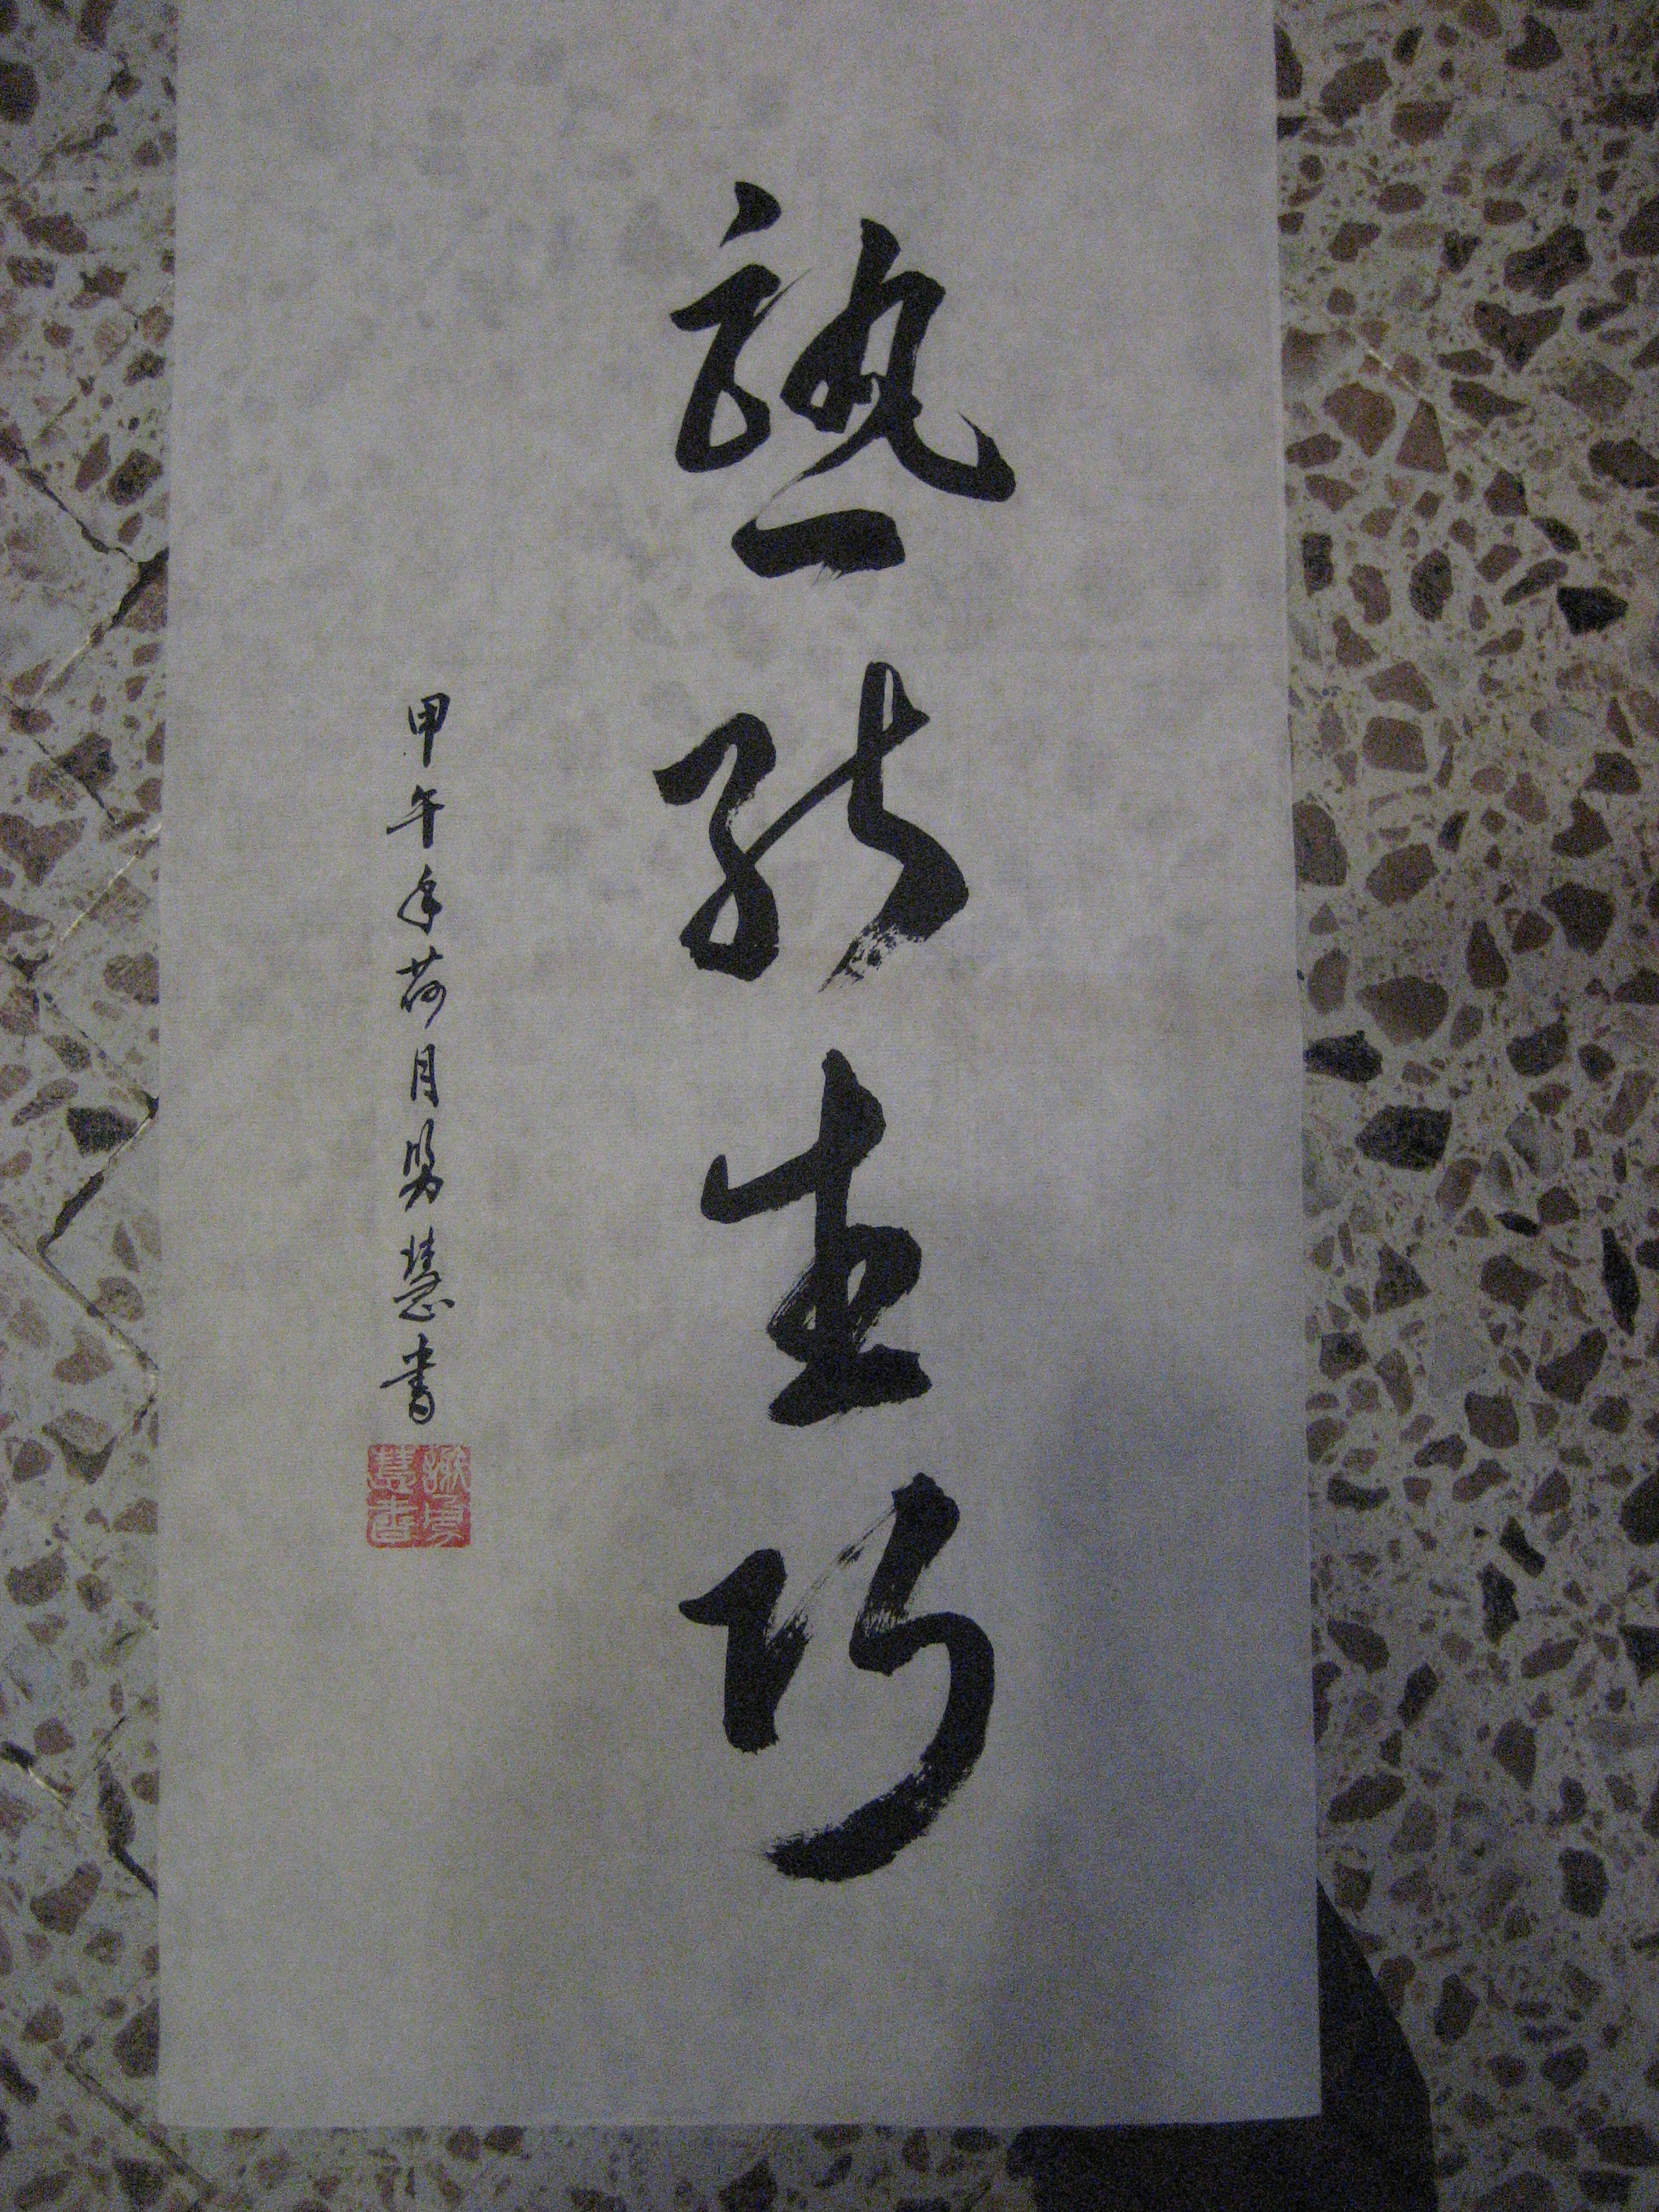 熟能生巧
甲午年荷月勇慧書